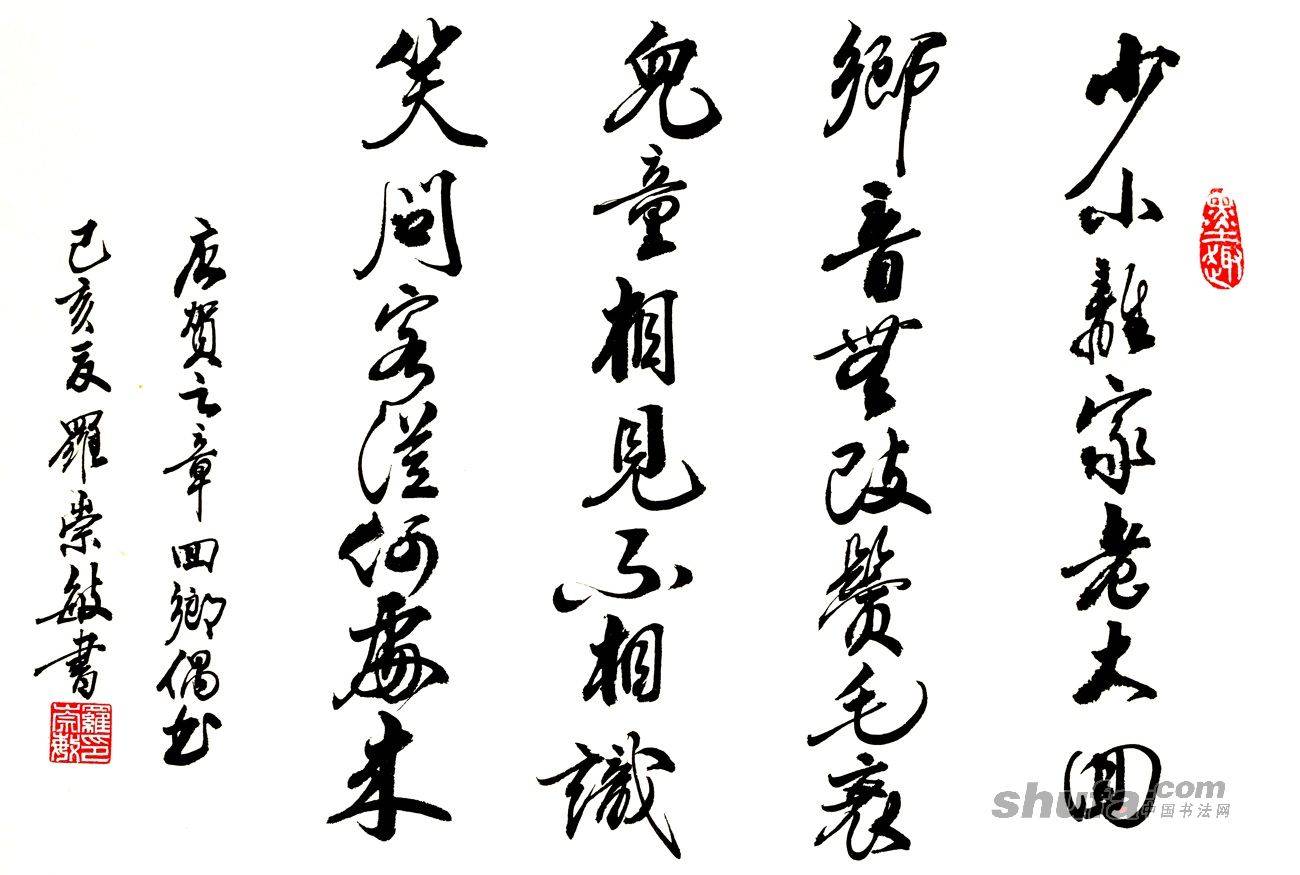 墨趣
少小離家老大回
鄉音無改鬢毛衰
兒童相見不相識
笑問客從何處來
唐賀之章回鄉偶书
己亥夏羅崇敏書
羅印崇敏
shufa.com
中国书法网